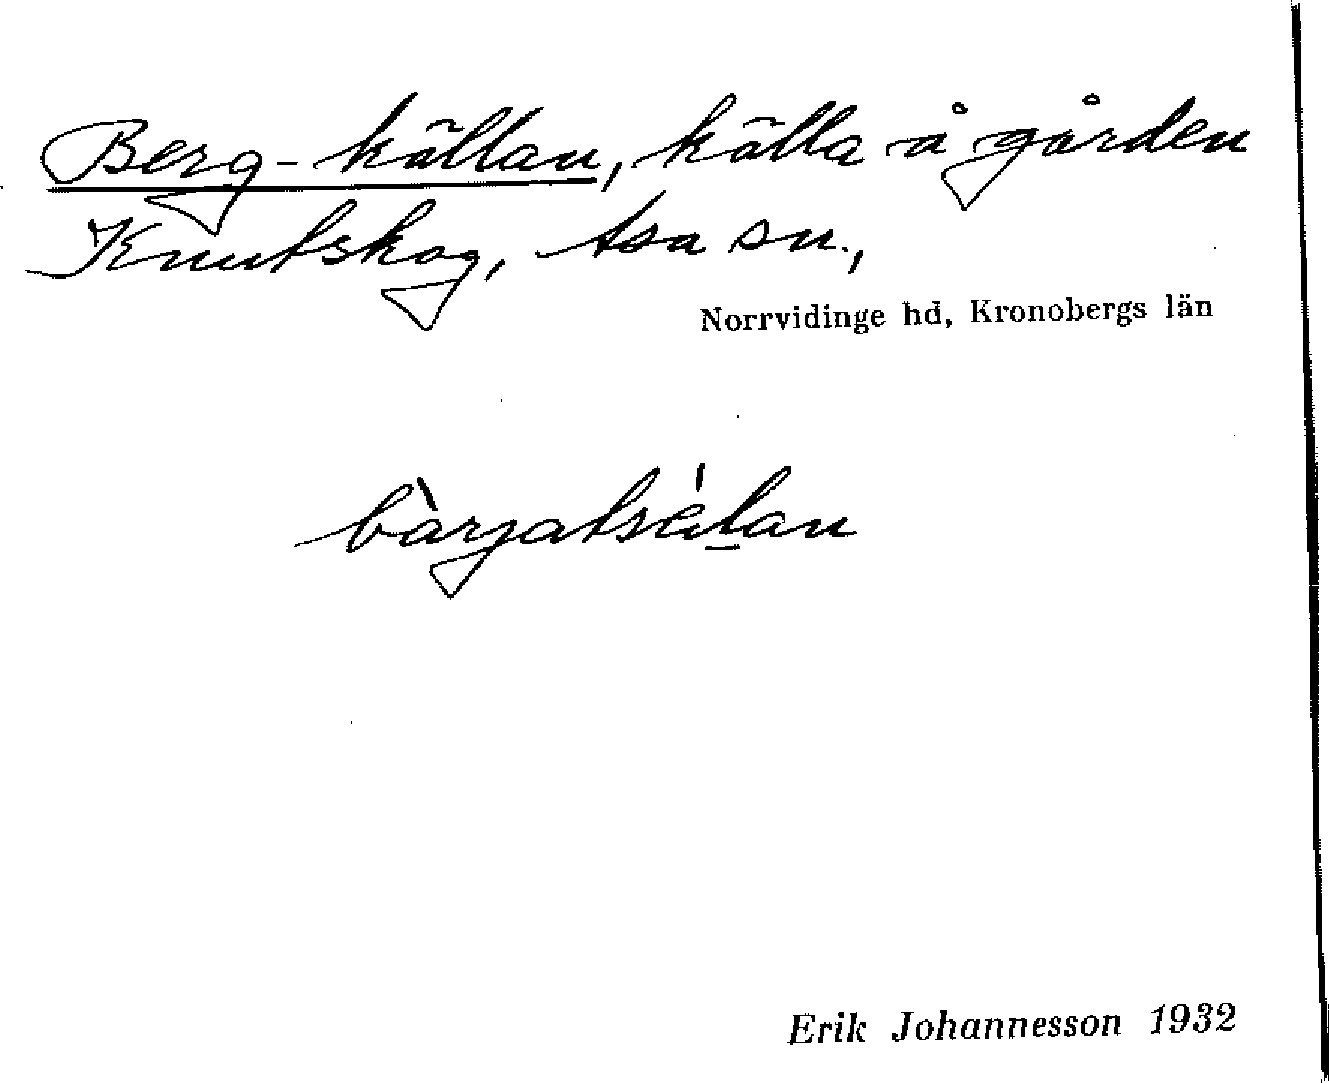 Berg-källan, källa å gården
Knutskog, Asa sn.,
Norrvidinge hd, Kronobergs län
Erik Johannesson 1932